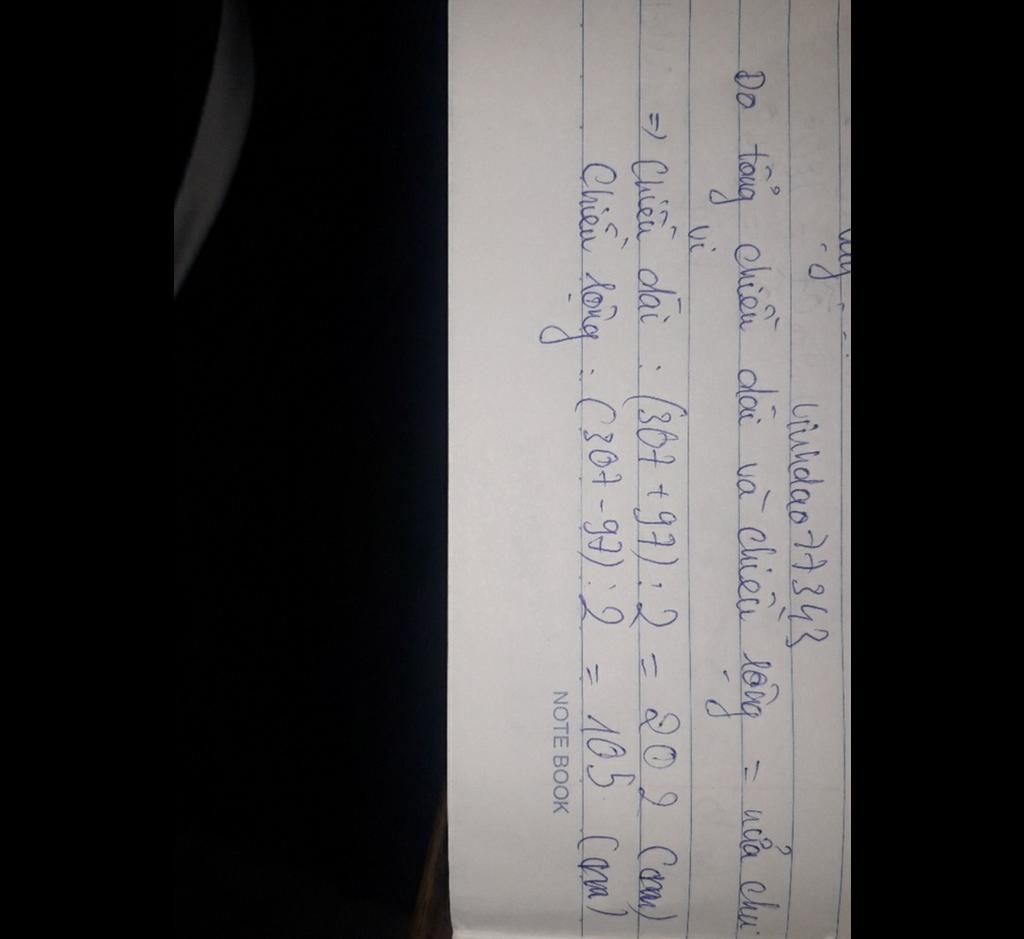 vinhdao77343
Do tổng chiều dài và chiều rộng = nửa chu
vi
=> Chiều dài : (307 + 97) : 2 = 202 (cm)
Chiều rộng : (307 - 97) : 2 = 105 (cm)
NOTE BOOK